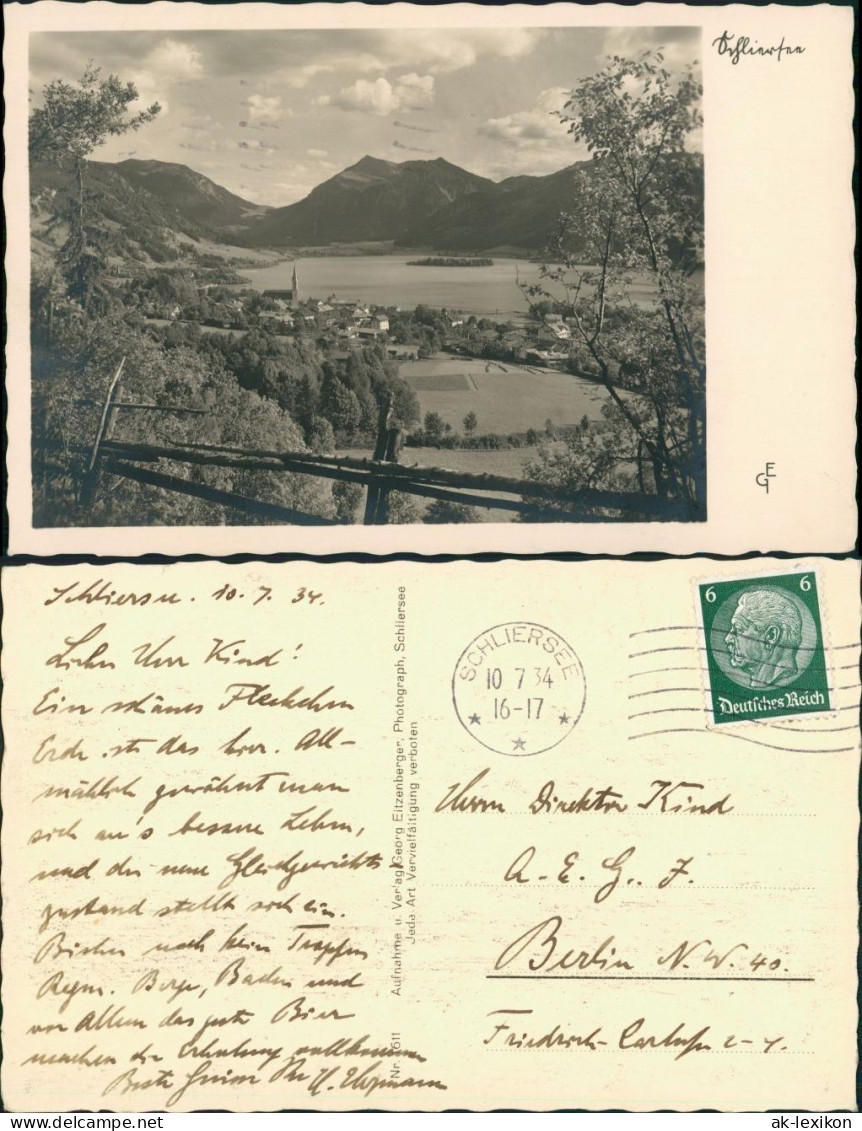 Schliersee
GE
Schliersee. 10.7.34.
Lieber Herr Kind!
Ein schönes Fleckchen
Erde ist das hier. All-
mählich gewöhnt man
sich an's bessere Leben,
und der neue Gleichgewichts-
zustand stellt sich ein.
Bisher noch kein Tropfen
Regen. Berge, Baden und
vor Allem das gute Bier
machen die Erholung vollkommen
Beste Grüsse Ihr
Nr. 611 Aufnahme u. Verlag Georg Eitzenberger, Photograph, Schliersee
Jede Art Vervielfältigung verboten
SCHLIERSEE
10 7 34
16-17
6 6
Deutsches Reich
Herrn Direktor Kind
A.E.G.
Berlin N.W. 40.
Friedrich-Carlufer 2-4.
www.ak-ansichtskarten.de
ak-lexikon